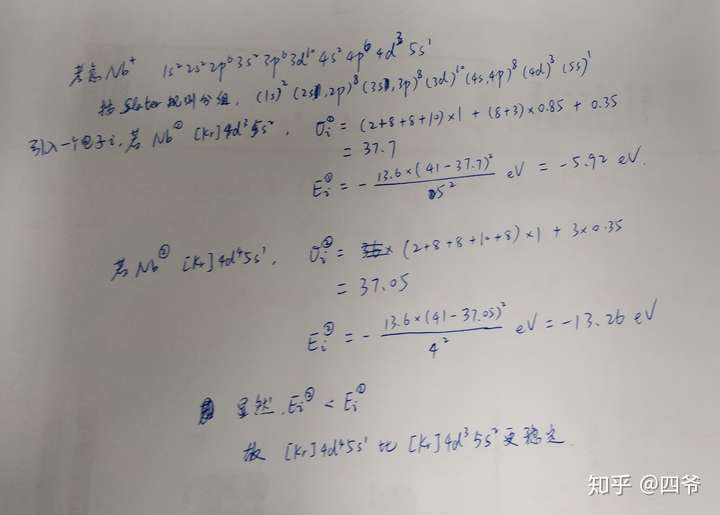 考虑 Nb⁺ 1s² 2s² 2p⁶ 3s² 3p⁶ 3d¹⁰ 4s² 4p⁶ 4d³ 5s¹
按 Slater 规则分组, (1s)² (2s, 2p)⁸ (3s, 3p)⁸ (3d)¹⁰ (4s, 4p)⁸ (4d)³ (5s)¹
引入一个电子i, 若 Nb① [Kr]4d³5s², σᵢ① = (2+8+8+10)×1 + (8+3)×0.85 + 0.35
= 37.7
Eᵢ① = - 13.6×(41-37.7)² / 5² eV = -5.92 eV.
若 Nb② [Kr]4d⁴5s¹, σᵢ② = (2+8+8+10+8)×1 + 3×0.35
= 37.05
Eᵢ② = - 13.6×(41-37.05)² / 4² eV = -13.26 eV
显然, Eᵢ② < Eᵢ①
故 [Kr]4d⁴5s¹ 比 [Kr]4d³5s² 更稳定.
知乎 @四爷